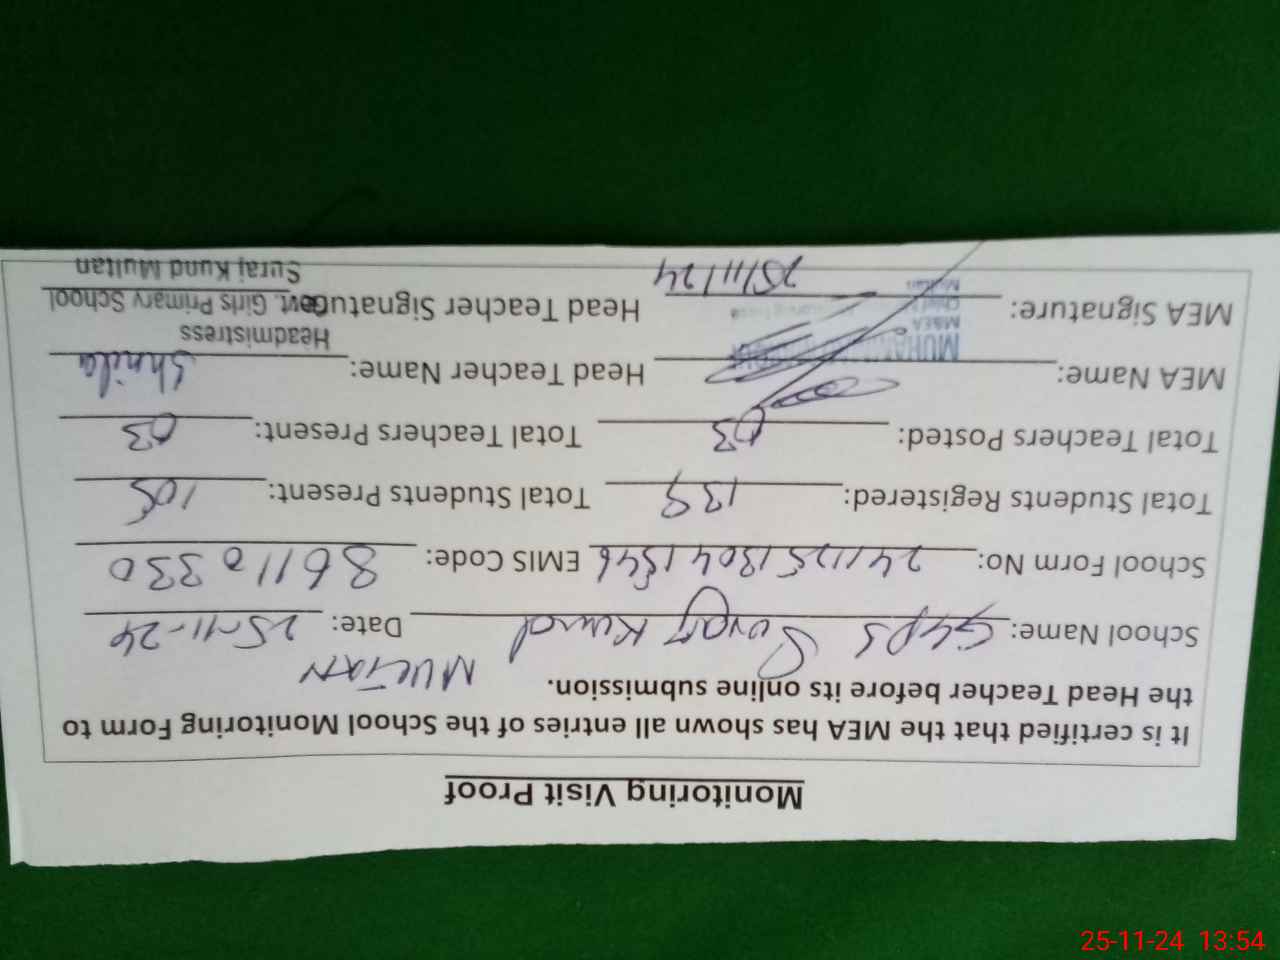 Monitoring Visit Proof
It is certified that the MEA has shown all entries of the School Monitoring Form to
the Head Teacher before its online submission.
MULTAN
School Name: GGPS Suraj Kund Date: 25-11-24
School Form No: 24112513041546 EMIS Code: 36110330
Total Students Registered: 139 Total Students Present: 105
Total Teachers Posted: 03 Total Teachers Present: 03
MEA Name: Head Teacher Name: Shnila
MUHAMMAD
M&EA
Headmistress
MEA Signature: Head Teacher Signature
Govt. Girls Primary School
25/11/24
Suraj Kund Multan
25-11-24 13:54